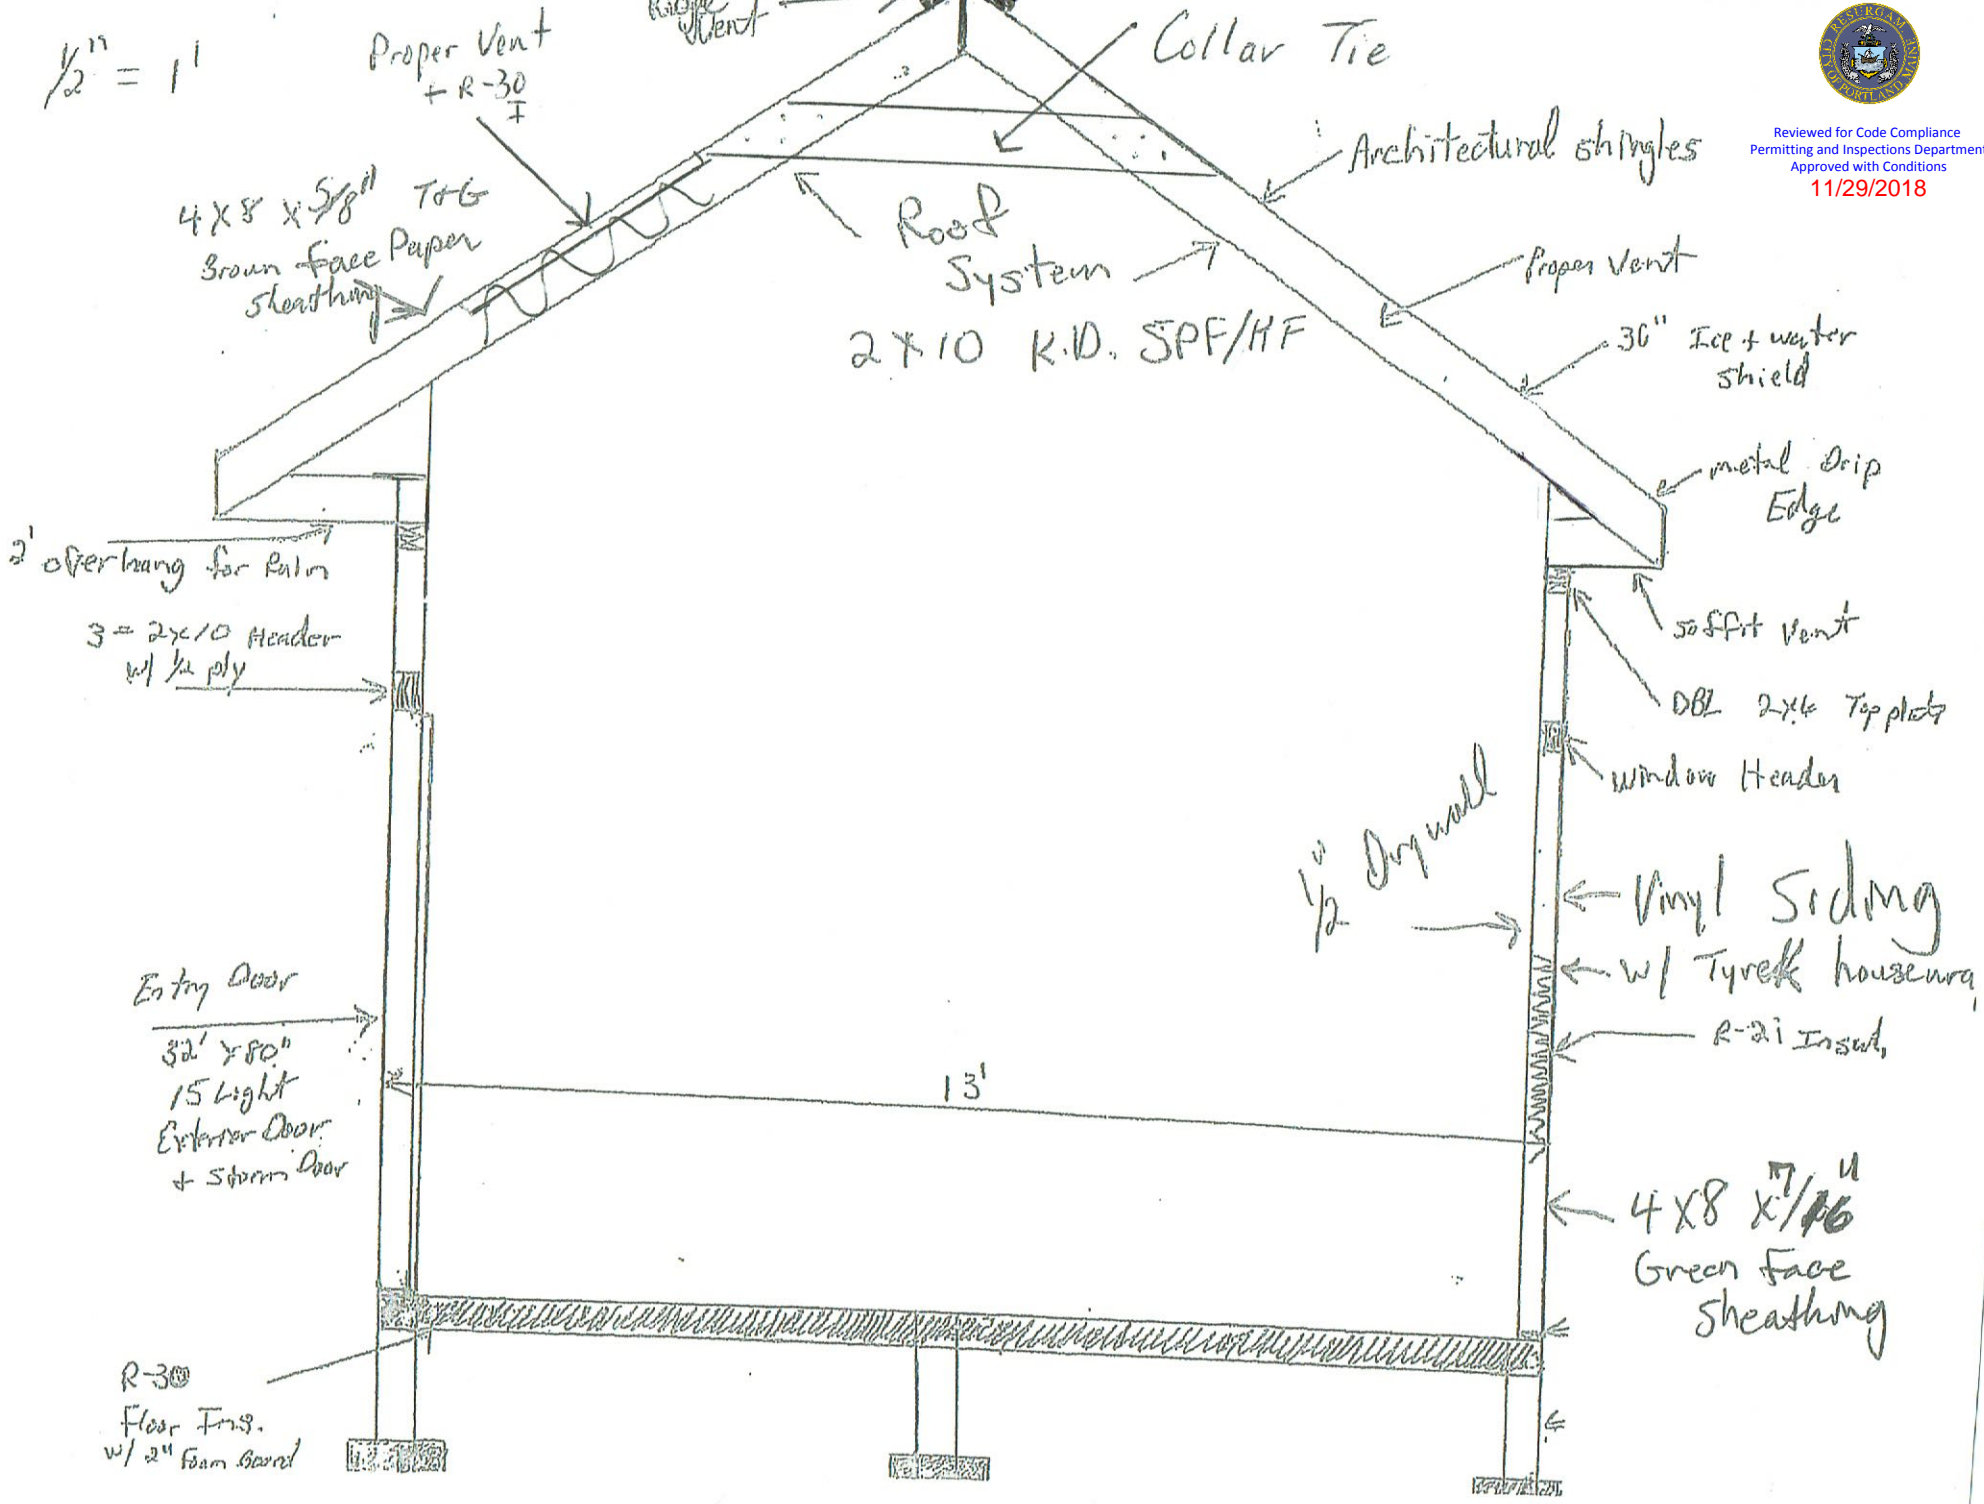 1/2" = 1'
Vent
Proper Vent
+ R-30
I
Collar Tie
RESURGAM
CITY OF PORTLAND MAINE
Reviewed for Code Compliance
Permitting and Inspections Department
Approved with Conditions
11/29/2018
4x8 x 5/8" T+G
Brown face Paper
sheathing
Architectural shingles
Roof
System
2x10 K.D. SPF/HF
Proper Vent
36" Ice + water
shield
metal Drip
Edge
2' overhang for
3 = 2x10 Header
w/ 1/2 ply
soffit vent
DBL Top
window Header
1/2" Drywall
Vinyl Siding
w/ housewra
R-21 Insul.
Entry Door
32' x 80"
15 Light
Exterior Door
+ Storm Door
13'
4x8 x 7/16"
Green face
sheathing
R-30
Floor Ins.
w/ 2" Foam Board